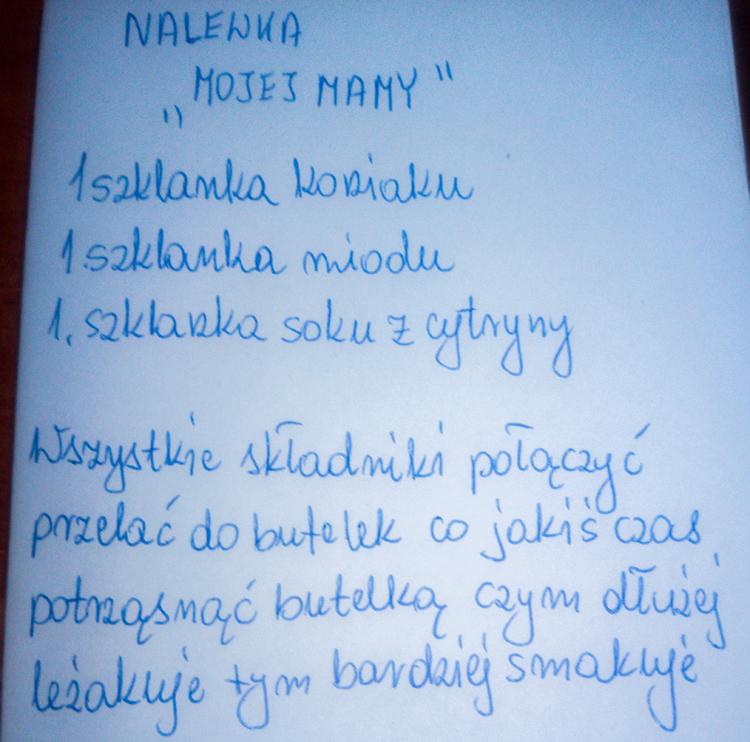 NALEWKA
„MOJEJ MAMY"
1 szklanka koniaku
1 szklanka miodu
1. szklanka soku z cytryny
Wszystkie składniki połączyć
przelać do butelek co jakiś czas
potrząsnąć butelką czym dłużej
leżakuje tym bardziej smakuje